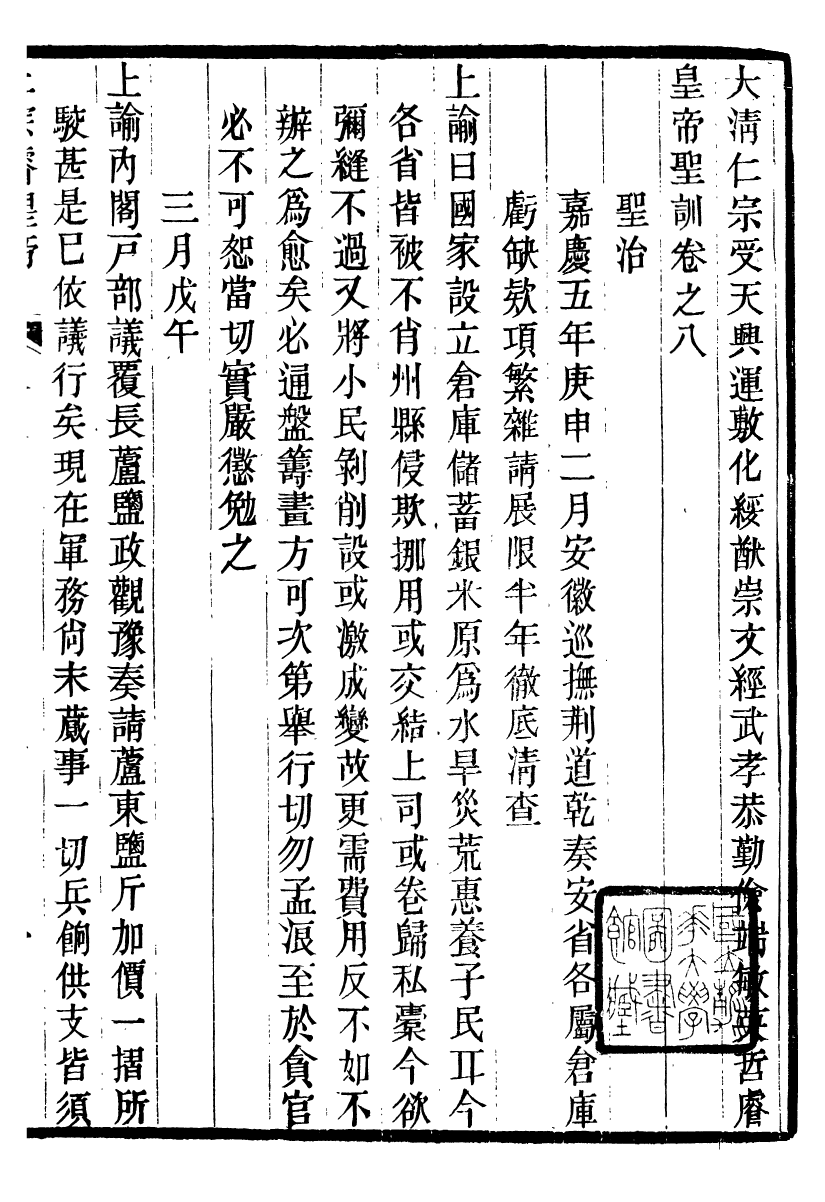 大清仁宗受天興運敷化綏猷崇文經武孝恭勤儉端敏英哲睿
皇帝聖訓卷之八
聖治
嘉慶五年庚申二月安徽巡撫荆道乾奏安省各屬倉庫
虧缺欵項繁雜請展限半年徹底清查
上諭曰國家設立倉庫儲蓄銀米原爲水旱災荒惠養子民耳今
各省皆被不肖州縣侵欺挪用或交結上司或卷歸私橐今欲
彌縫不過又將小民剝削設或激成變故更需費用反不如不
辦之爲愈矣必通盤籌畫方可次第舉行切勿孟浪至於貪官
必不可恕當切實嚴懲勉之
三月戊午
上諭內閣戸部議覆長蘆鹽政觀豫奏請蘆東鹽斤加價一摺所
駮甚是已依議行矣現在軍務尙未蕆事一切兵餉供支皆須
國立北平大學圖書館藏